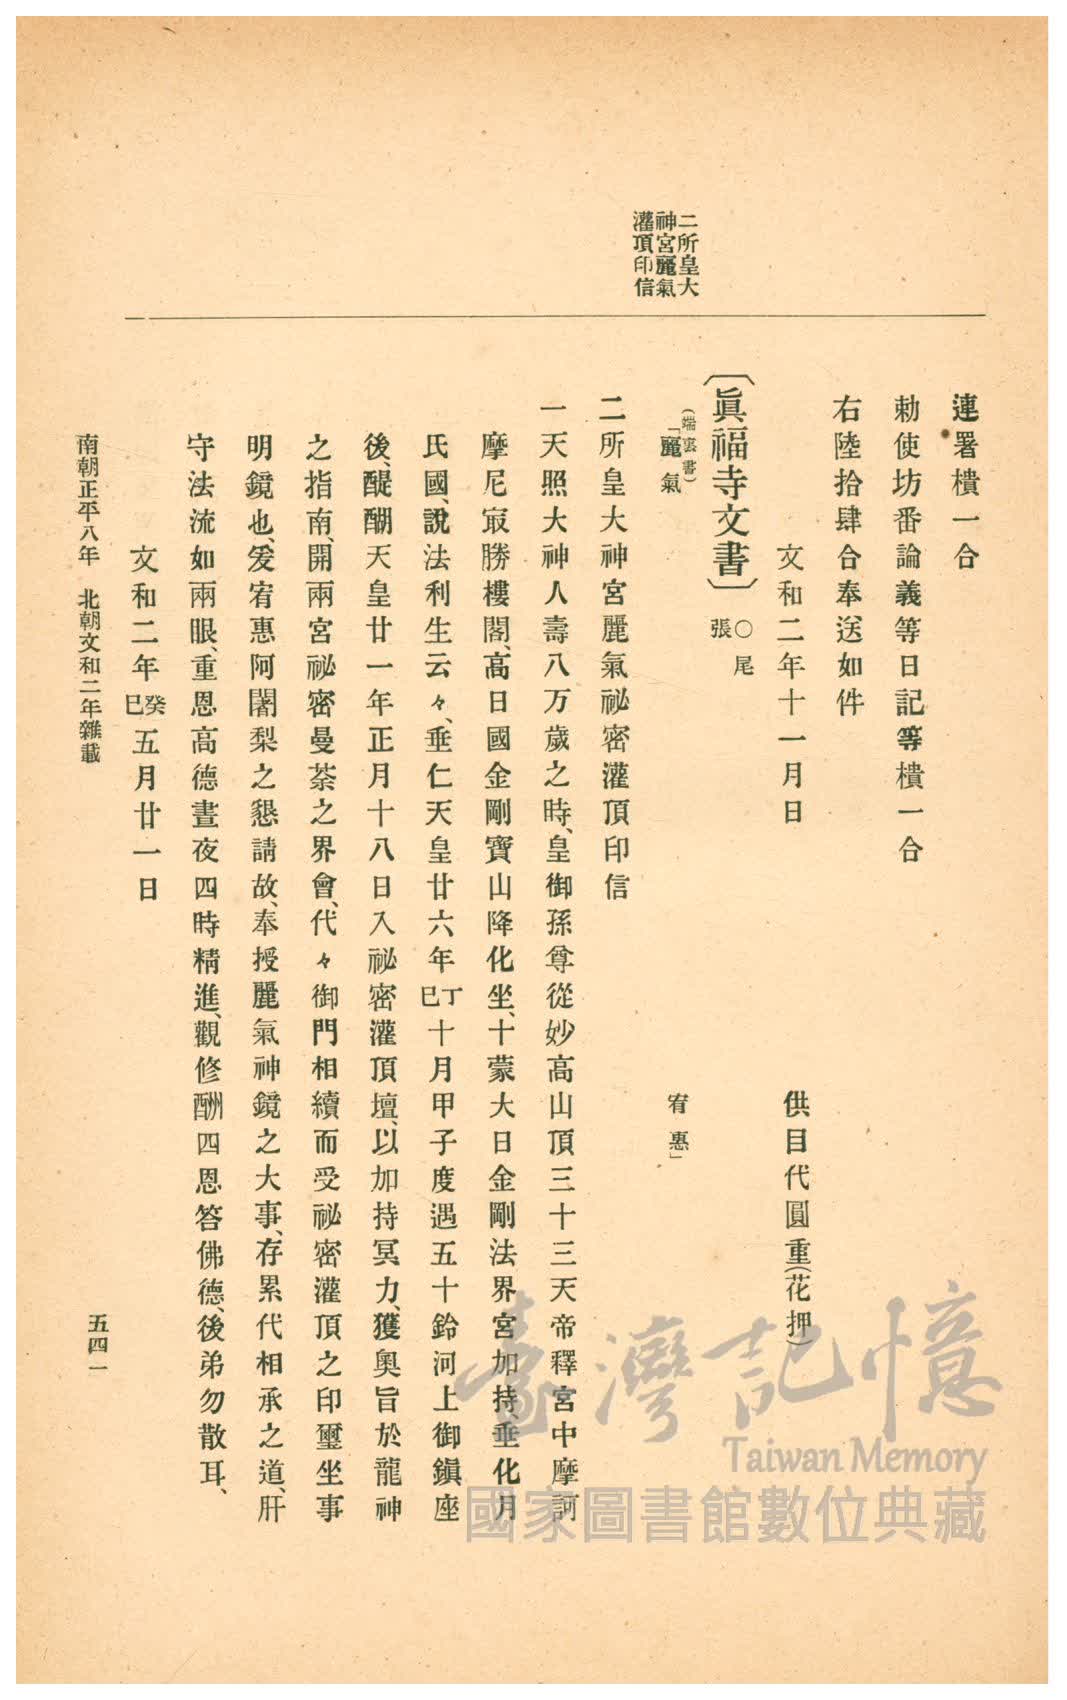 二所皇大
神宮麗氣
灌頂印信
連署樻一合
勅使坊番論義等日記等樻一合
右陸拾肆合奉送如件
文和二年十一月日
供目代圓重(花押)
〔眞福寺文書〕○尾張
(端裏書)
「麗氣
宥惠」
二所皇大神宮麗氣祕密灌頂印信
一天照大神人壽八万歲之時、皇御孫尊從妙高山頂三十三天帝釋宮中摩訶
摩尼㝡勝樓閣、高日國金剛寶山降化坐、十蒙大日金剛法界宮加持、垂化月
氏國、說法利生云々、垂仁天皇廿六年丁巳十月甲子度遇五十鈴河上御鎭座
後、醍醐天皇廿一年正月十八日入祕密灌頂壇、以加持冥力、獲奧旨於龍神
之指南、開兩宮祕密曼荼之界會、代々御門相續而受祕密灌頂之印璽坐事
明鏡也、爰宥惠阿闍梨之懇請故、奉授麗氣神鏡之大事、存累代相承之道、肝
守法流如兩眼、重恩高德晝夜四時精進、觀修酬四恩答佛德、後弟勿散耳、
文和二年癸巳五月廿一日
南朝正平八年　北朝文和二年雜載
五四一
臺灣記憶
Taiwan Memory
國家圖書館數位典藏